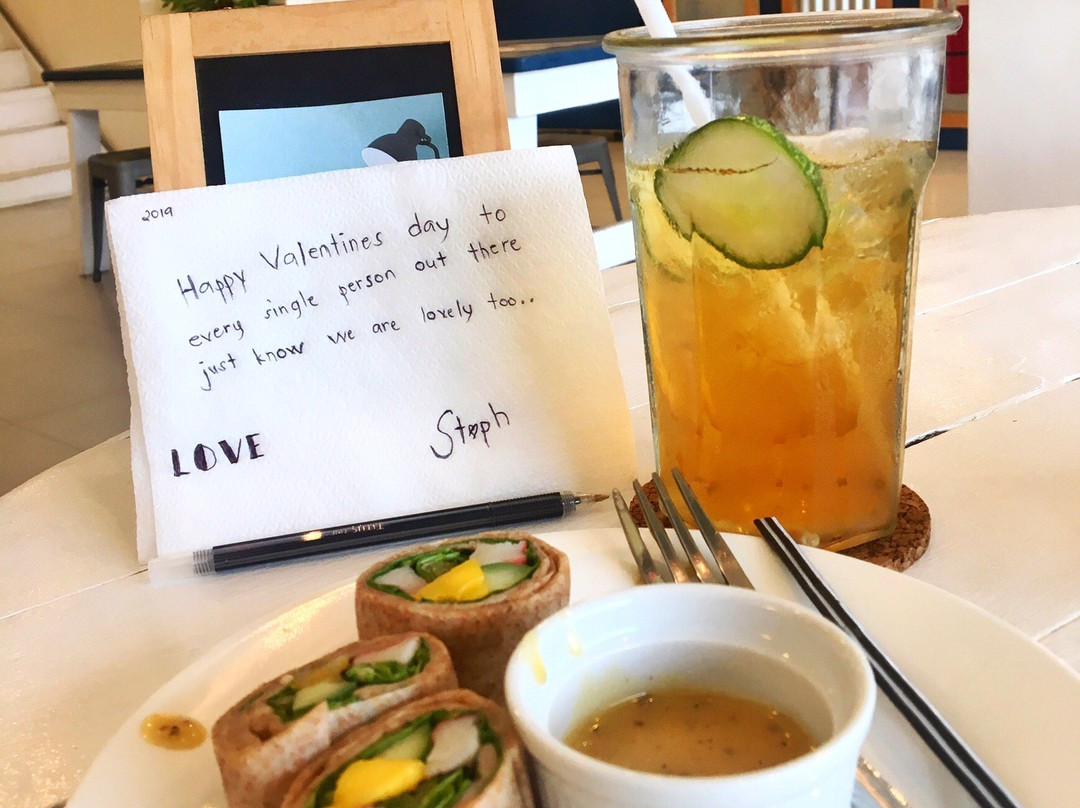 2019
Happy Valentines day to
every single person out there
just know we are lovely too..
LOVE
Steph